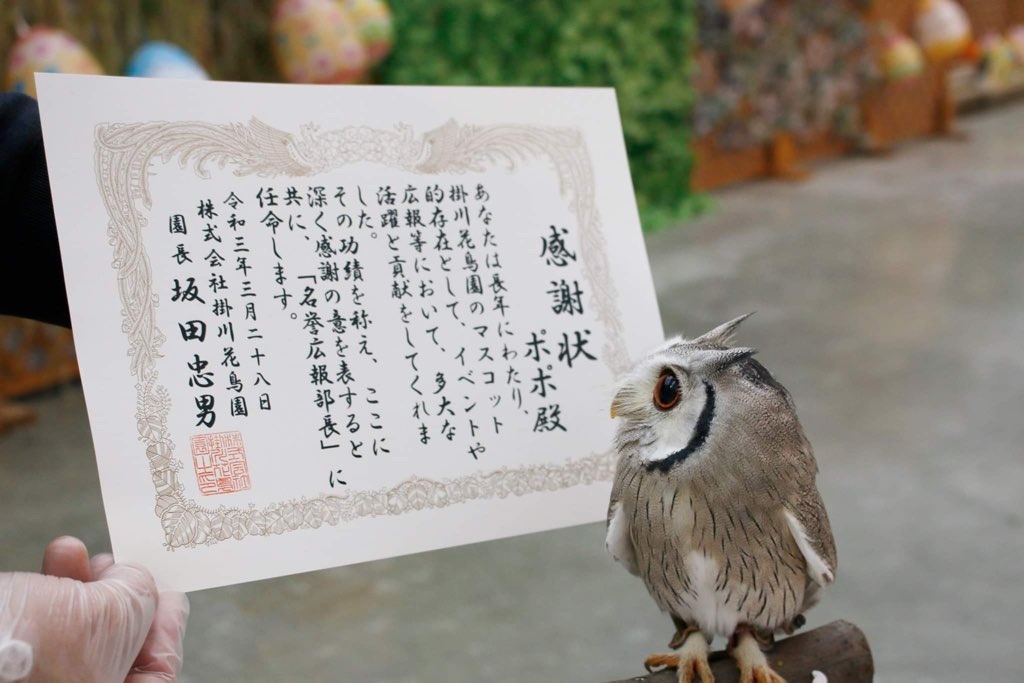 感謝状
ポポ殿
あなたは長年にわたり、
掛川花鳥園のマスコット
的存在として、イベントや
広報等において、多大な
活躍と貢献をしてくれま
した。
その功績を称え、ここに
深く感謝の意を表すると
共に、「名誉広報部長」に
任命します。
令和三年三月二十八日
株式会社掛川花鳥園
園長 坂田忠男